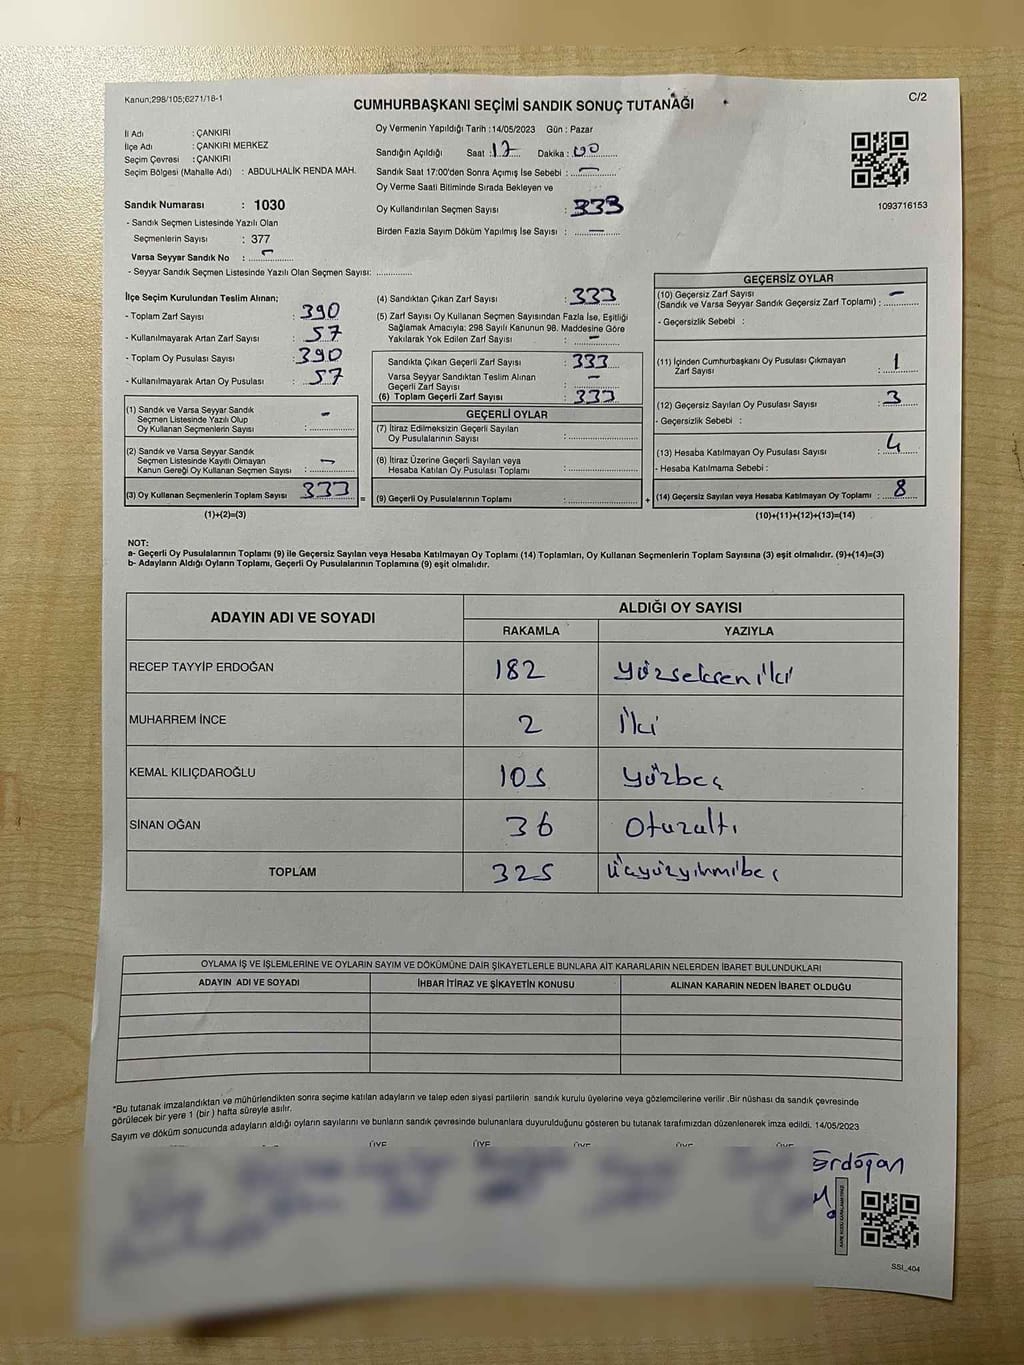 Kanun;298/105;6271/18-1
CUMHURBAŞKANI SEÇİMİ SANDIK SONUÇ TUTANAĞI
C/2
İl Adı : ÇANKIRI
İlçe Adı : ÇANKIRI MERKEZ
Seçim Çevresi : ÇANKIRI
Seçim Bölgesi (Mahalle Adı) : ABDULHALİK RENDA MAH.
Sandık Numarası : 1030
- Sandık Seçmen Listesinde Yazılı Olan
Seçmenlerin Sayısı : 377
Varsa Seyyar Sandık No : -
- Seyyar Sandık Seçmen Listesinde Yazılı Olan Seçmen Sayısı: ............
Oy Vermenin Yapıldığı Tarih :14/05/2023 Gün : Pazar
Sandığın Açıldığı Saat : 17 Dakika : 00
Sandık Saat 17:00'den Sonra Açımış İse Sebebi : -
Oy Verme Saati Bitiminde Sırada Bekleyen ve
Oy Kullandırılan Seçmen Sayısı : 333
Birden Fazla Sayım Döküm Yapılmış İse Sayısı : -
1093716153
İlçe Seçim Kurulundan Teslim Alınan;
- Toplam Zarf Sayısı : 390
- Kullanılmayarak Artan Zarf Sayısı : 57
- Toplam Oy Pusulası Sayısı : 390
- Kullanılmayarak Artan Oy Pusulası : 57
(1) Sandık ve Varsa Seyyar Sandık
Seçmen Listesinde Yazılı Olup
Oy Kullanan Seçmenlerin Sayısı : -
(2) Sandık ve Varsa Seyyar Sandık
Seçmen Listesinde Kayıtlı Olmayan
Kanun Gereği Oy Kullanan Seçmen Sayısı : -
(3) Oy Kullanan Seçmenlerin Toplam Sayısı 333 =
(1)+(2)=(3)
(4) Sandıktan Çıkan Zarf Sayısı : 333
(5) Zarf Sayısı Oy Kullanan Seçmen Sayısından Fazla İse, Eşitliği
Sağlamak Amacıyla; 298 Sayılı Kanunun 98. Maddesine Göre
Yakılarak Yok Edilen Zarf Sayısı : -
Sandıkta Çıkan Geçerli Zarf Sayısı : 333
Varsa Seyyar Sandıktan Teslim Alınan
Geçerli Zarf Sayısı : -
(6) Toplam Geçerli Zarf Sayısı : 333
GEÇERLİ OYLAR
(7) İtiraz Edilmeksizin Geçerli Sayılan
Oy Pusulalarının Sayısı :
(8) İtiraz Üzerine Geçerli Sayılan veya
Hesaba Katılan Oy Pusulası Toplamı :
(9) Geçerli Oy Pusulalarının Toplamı : +
GEÇERSİZ OYLAR
(10) Geçersiz Zarf Sayısı
(Sandık ve Varsa Seyyar Sandık Geçersiz Zarf Toplamı) : -
- Geçersizlik Sebebi :
(11) İçinden Cumhurbaşkanı Oy Pusulası Çıkmayan
Zarf Sayısı : 1
(12) Geçersiz Sayılan Oy Pusulası Sayısı : 3
- Geçersizlik Sebebi :
(13) Hesaba Katılmayan Oy Pusulası Sayısı : 4
- Hesaba Katılmama Sebebi :
(14) Geçersiz Sayılan veya Hesaba Katılmayan Oy Toplamı : 8
(10)+(11)+(12)+(13)=(14)
NOT:
a- Geçerli Oy Pusulalarının Toplamı (9) ile Geçersiz Sayılan veya Hesaba Katılmayan Oy Toplamı (14) Toplamları, Oy Kullanan Seçmenlerin Toplam Sayısına (3) eşit olmalıdır. (9)+(14)=(3)
b- Adayların Aldığı Oyların Toplamı, Geçerli Oy Pusulalarının Toplamına (9) eşit olmalıdır.
ADAYIN ADI VE SOYADI ALDIĞI OY SAYISI
RAKAMLA YAZIYLA
RECEP TAYYİP ERDOĞAN 182 Yüzseksen iki
MUHARREM İNCE 2 İki
KEMAL KILIÇDAROĞLU 105 Yüzbeş
SİNAN OĞAN 36 Otuzaltı
TOPLAM 325 Üçyüzyirmibeş
OYLAMA İŞ VE İŞLEMLERİNE VE OYLARIN SAYIM VE DÖKÜMÜNE DAİR ŞİKAYETLERLE BUNLARA AİT KARARLARIN NELERDEN İBARET BULUNDUKLARI
ADAYIN ADI VE SOYADI İHBAR İTİRAZ VE ŞİKAYETİN KONUSU ALINAN KARARIN NEDEN İBARET OLDUĞU
*Bu tutanak imzalandıktan ve mühürlendikten sonra seçime katılan adayların ve talep eden siyasi partilerin sandık kurulu üyelerine veya gözlemcilerine verilir .Bir nüshası da sandık çevresinde
görülecek bir yere 1 (bir ) hafta süreyle asılır.
Sayım ve döküm sonucunda adayların aldığı oyların sayılarını ve bunların sandık çevresinde bulunanlara duyurulduğunu gösteren bu tutanak tarafımızdan düzenlenerek imza edildi. 14/05/2023
ÜYE ÜYE ÜYE ÜYE ÜYE
Erdoğan
SSI_404